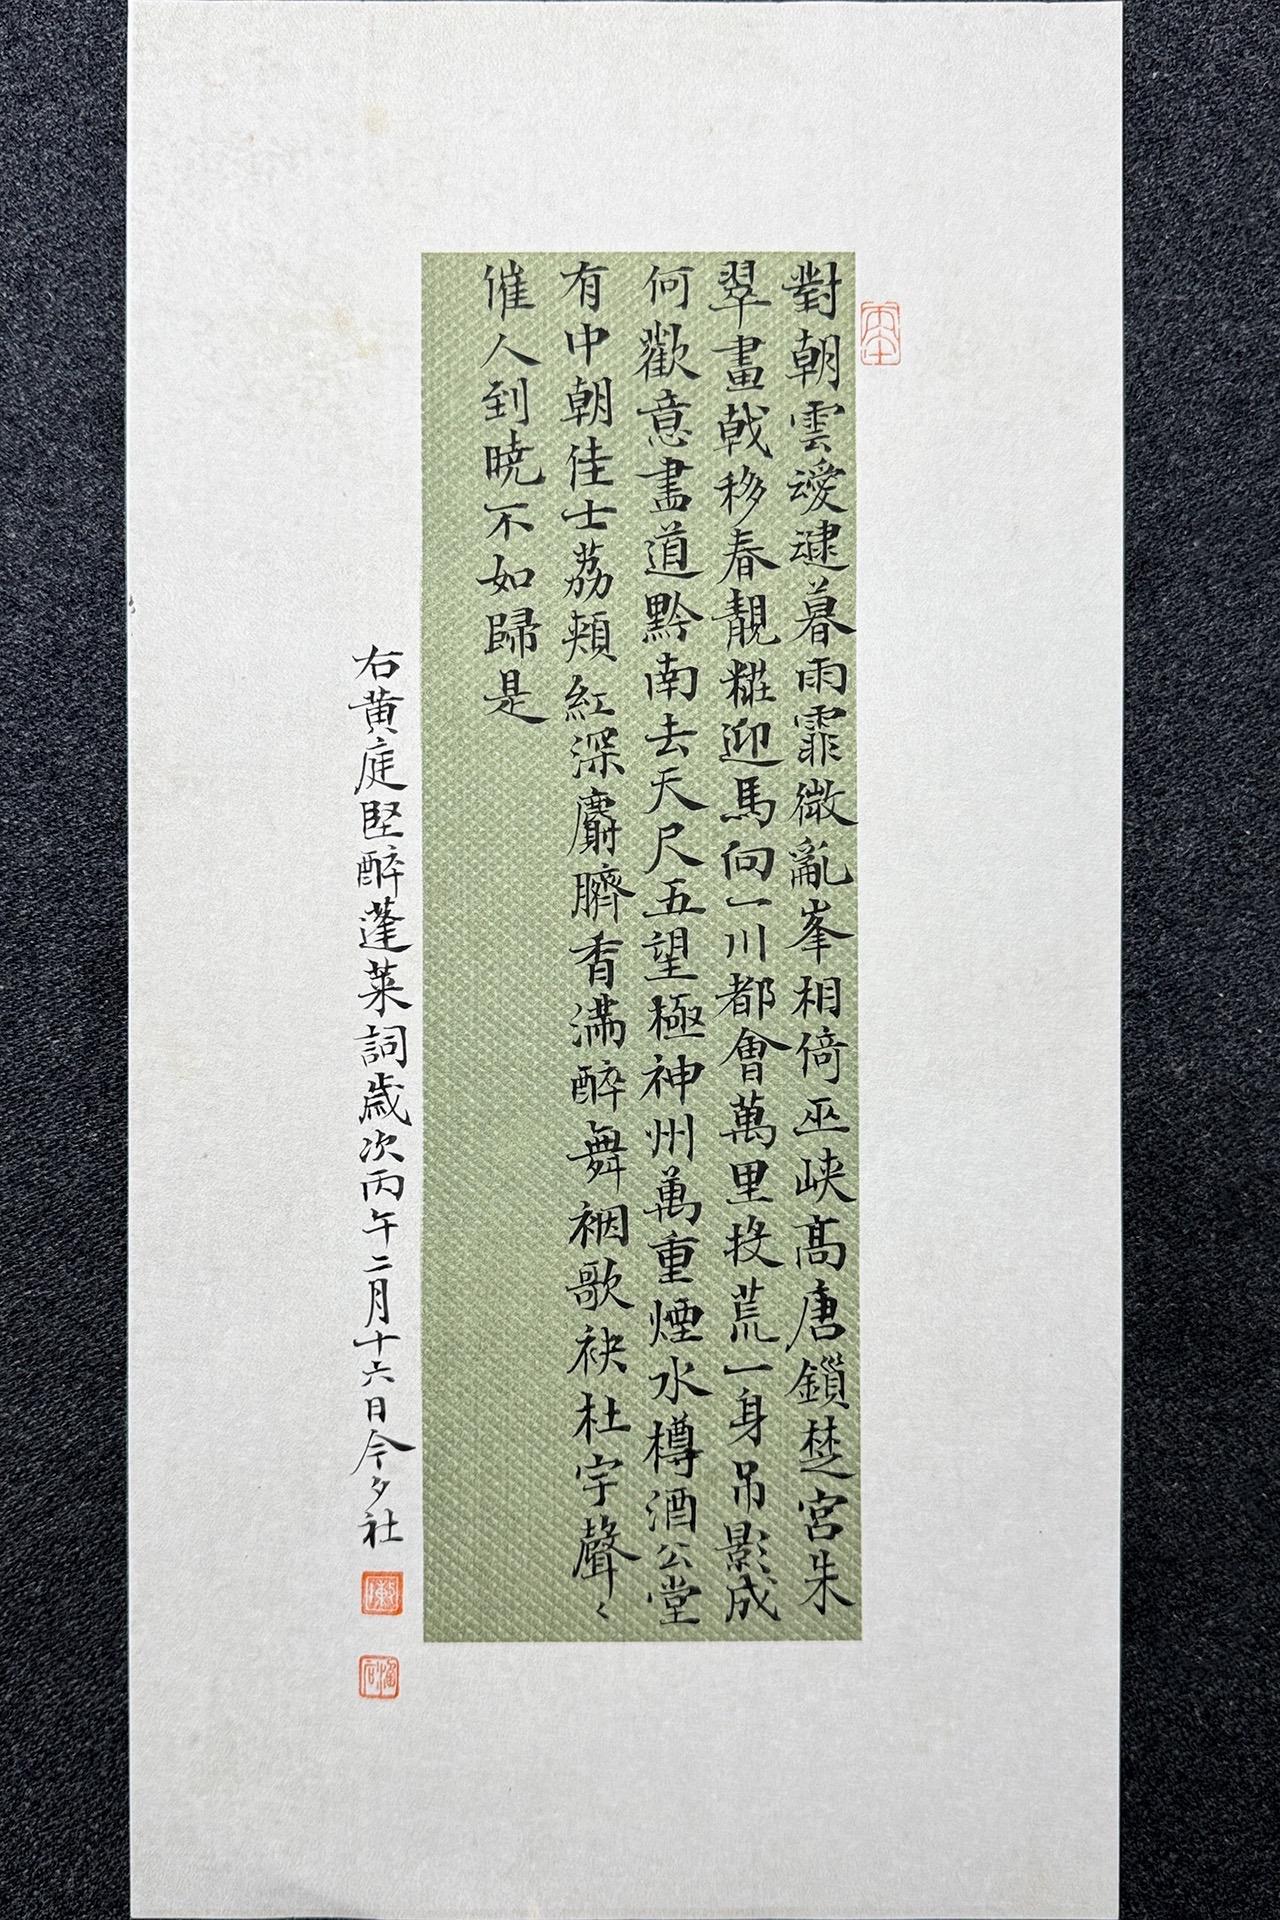 對朝雲靉靆暮雨霏微亂峯相倚巫峽高唐鎖楚宮朱
翠畫戟移春靚糚迎馬向一川都會萬里投荒一身吊影成
何歡意盡道黔南去天尺五望極神州萬重煙水樽酒公堂
有中朝佳士荔頰紅深麝臍香滿醉舞裀歌袂杜宇聲〻
催人到曉不如歸是
右黄庭堅醉蓬萊詞歲次丙午二月十六日今夕社